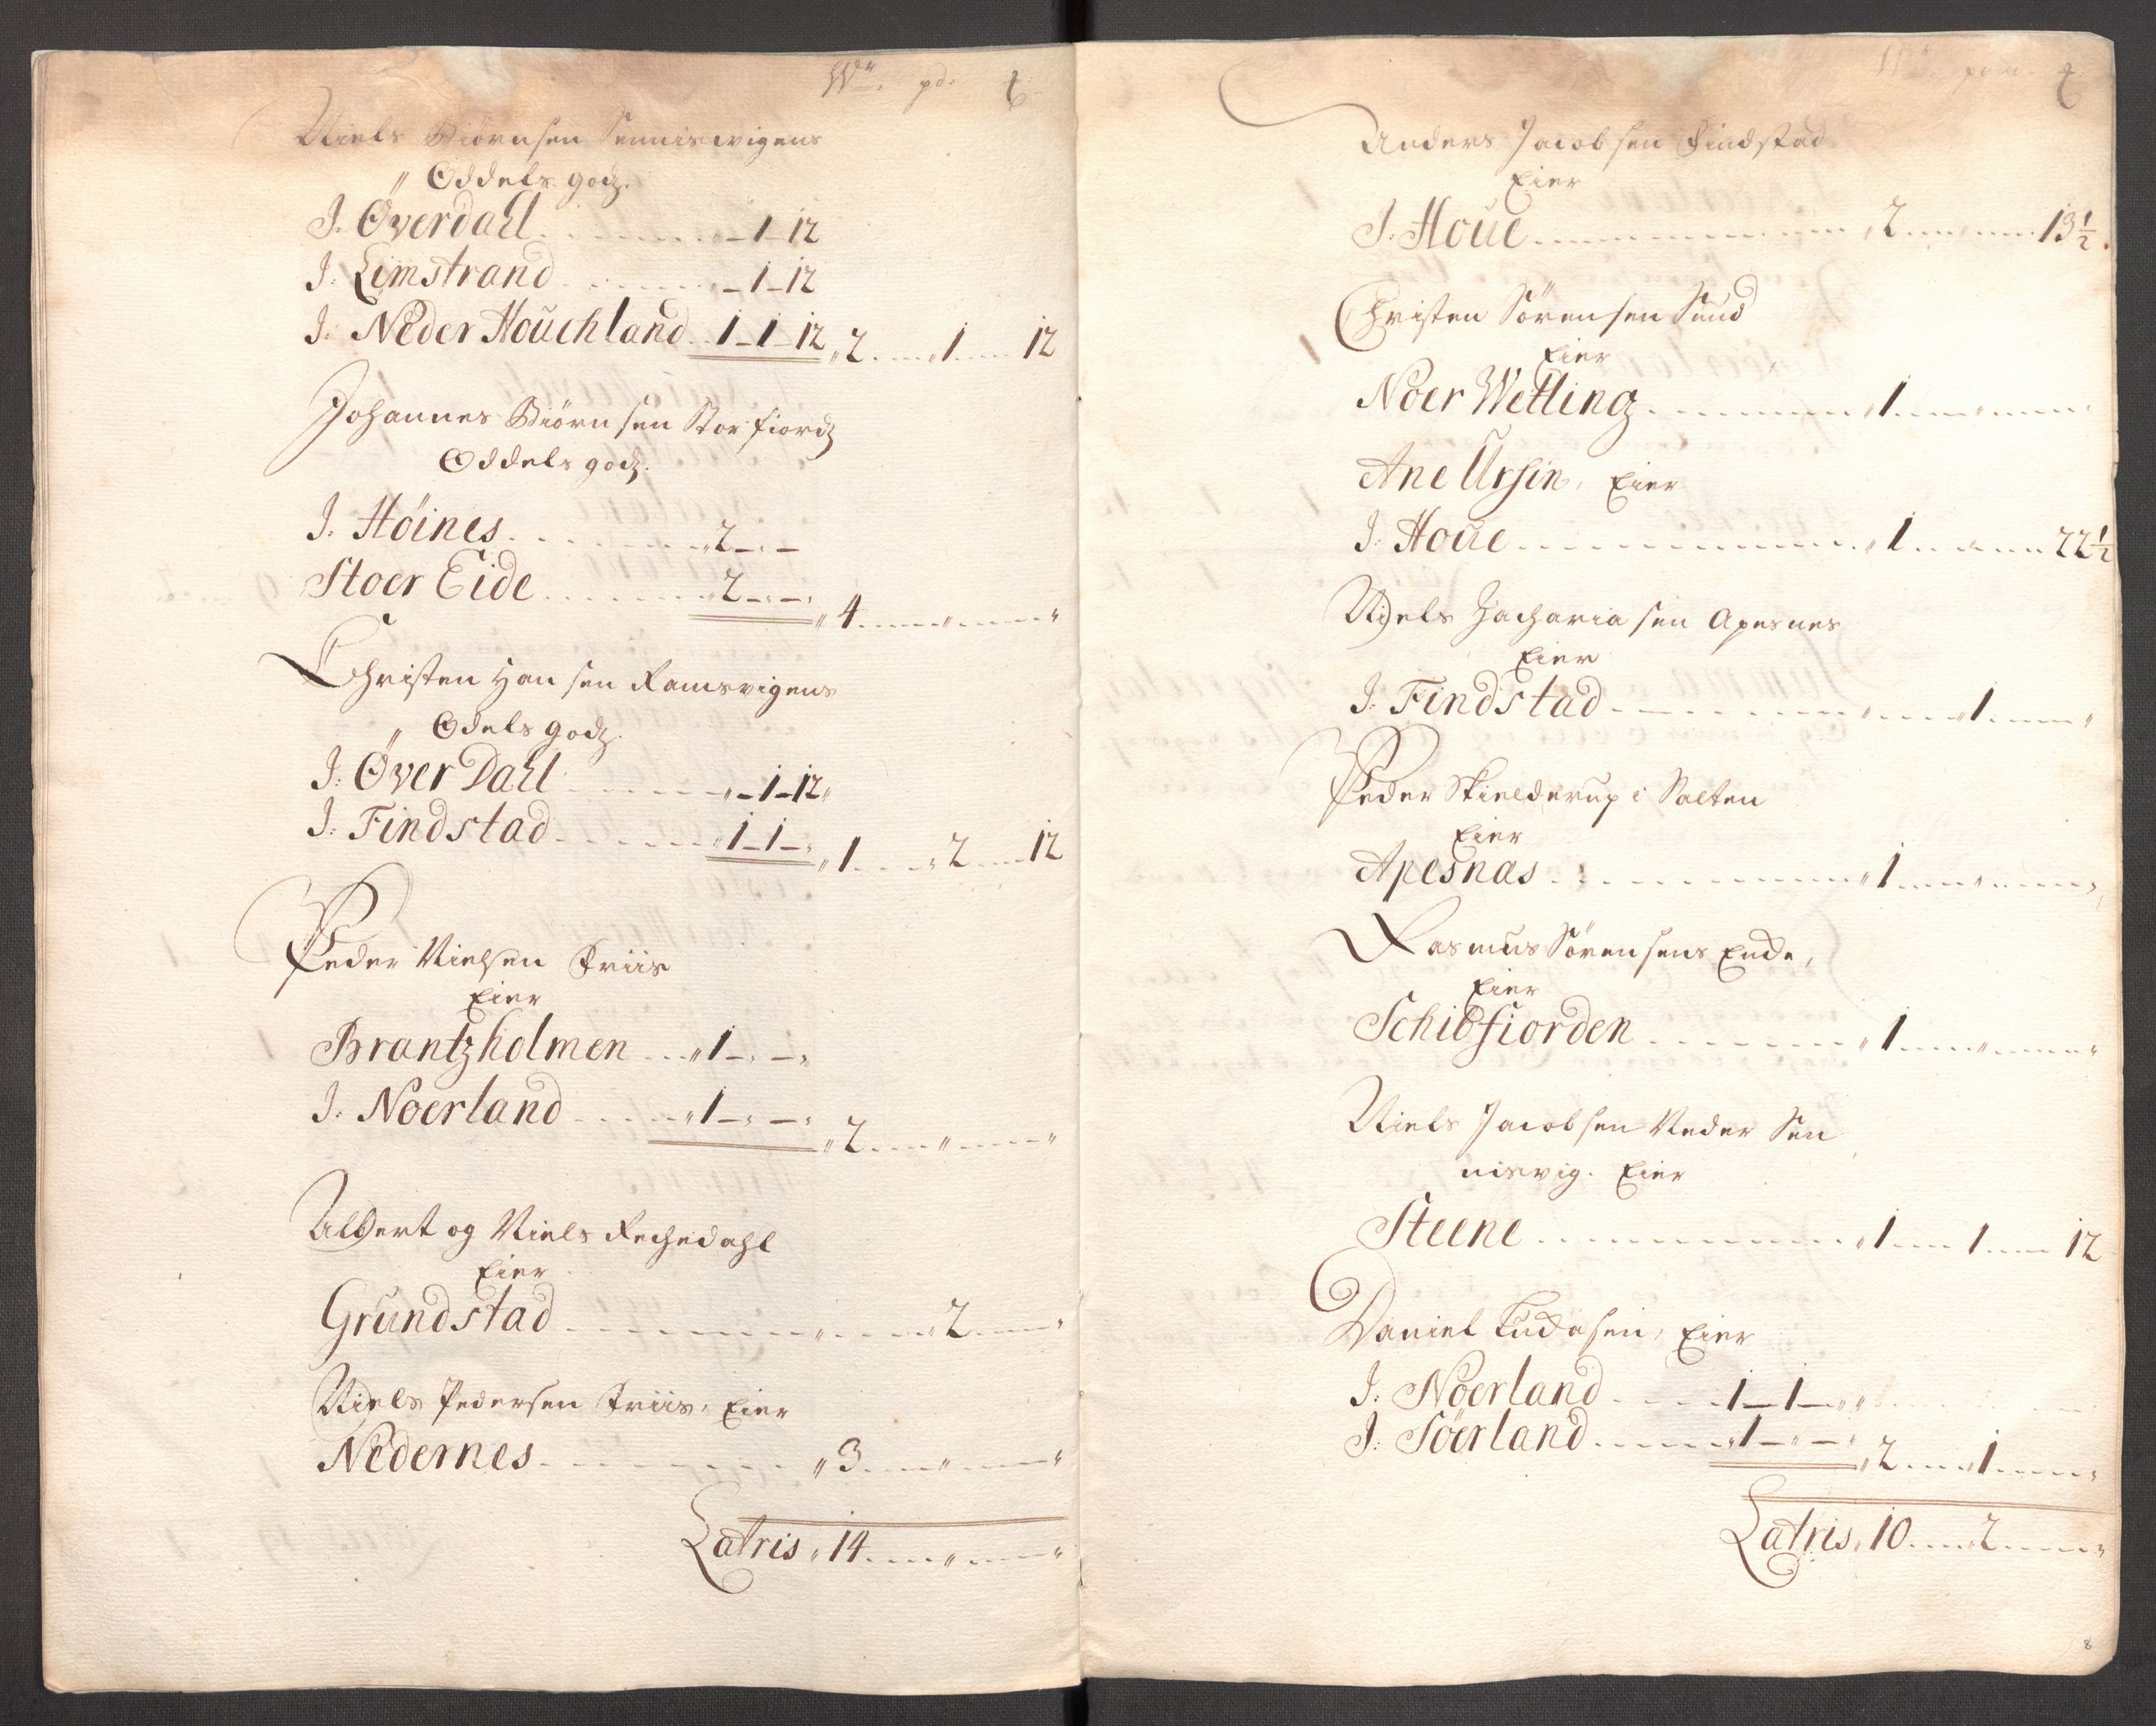 Wu. pd. ℔
Niels Biörnsen Senniswigens
" Oddels godz.
J. Øverdahl - 1 - 12
J: Limstrand - 1 - 12
J: Neder Houchland 1 - 1 - 12 " 2 1 12
Johannes Biörnsen Storfiordz
Oddels godz.
J. Höines 2 - " -
Stoer Eide 2 - " - " 4 " "
Christen Hansen Ramsvigens
" Odels godz.
J: Øver Dahl " - 1 - 12 "
J: Findstad " 1 - 1 - " " 1 " 2 12
Peder Nielsen Friis
Eier
Brantzholmen " 1 - " - "
J: Noerland " 1 - " - " " 2 " "
Albert og Niels Rechedahl
Eier
Grundstad " " 2 "
Niels Pedersen Friis, Eier
Nedernes " 3 " "
Latris " 14 " "
Wu. pund. ℔
Anders Jacobsen Findstad
Eier
J. Houe " 2 " 13½.
Christen Sörensen Sund
Eier
Noer Wetting " 1 " "
Ane Ursin, Eier
J: Houe " 1 " 22½
Niels Zachariasen Apesnes
Eier
J: Findstad " " 1 "
Peder Skielderup i Salten
Eier
Apesnas " 1 " "
Rasmus Sörensens Encke,
Eier
Schibfiorden " 1 " "
Niels Jacobsen Neder Sen
nisvig. Eier
Steene " 1 1 12
Daniel Eier
J: Noerland 1 - 1 - "
J: Söerland " 1 - " - " " 2 " 1 "
Latris " 10 " 2 "
8